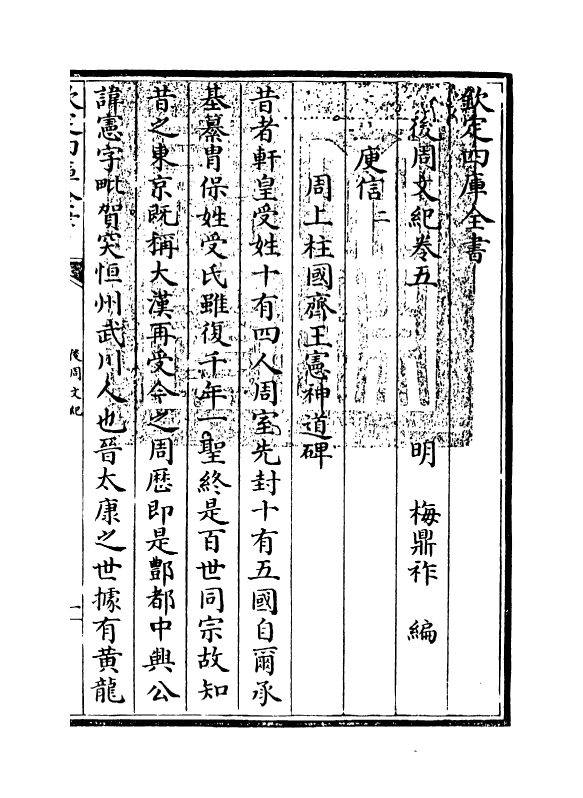 欽定四庫全書
後周文紀卷五
明 梅鼎祚 編
庾信二
周上柱國齊王憲神道碑
昔者軒皇受姓十有四人周室先封十有五國自爾承
基纂胄保姓受氏雖復千年一聖終是百世同宗故知
昔之東京既稱大漢再受命之周歴即是酆都中興公
諱憲字毗賀突恒州武川人也晉太康之世據有黄龍
欽定四庫全書
後周文紀
一